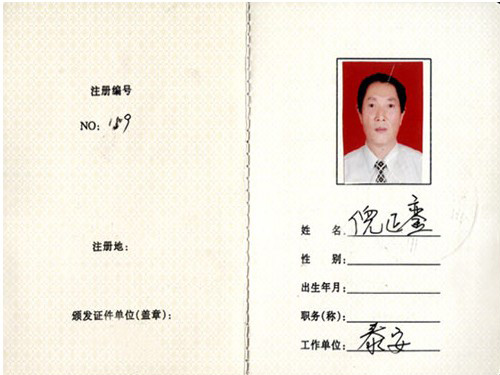 注册编号
NO: 159
注册地:
颁发证件单位(盖章):
姓 名 倪正銮
性 别:
出生年月:
职务(称):
工作单位: 泰安